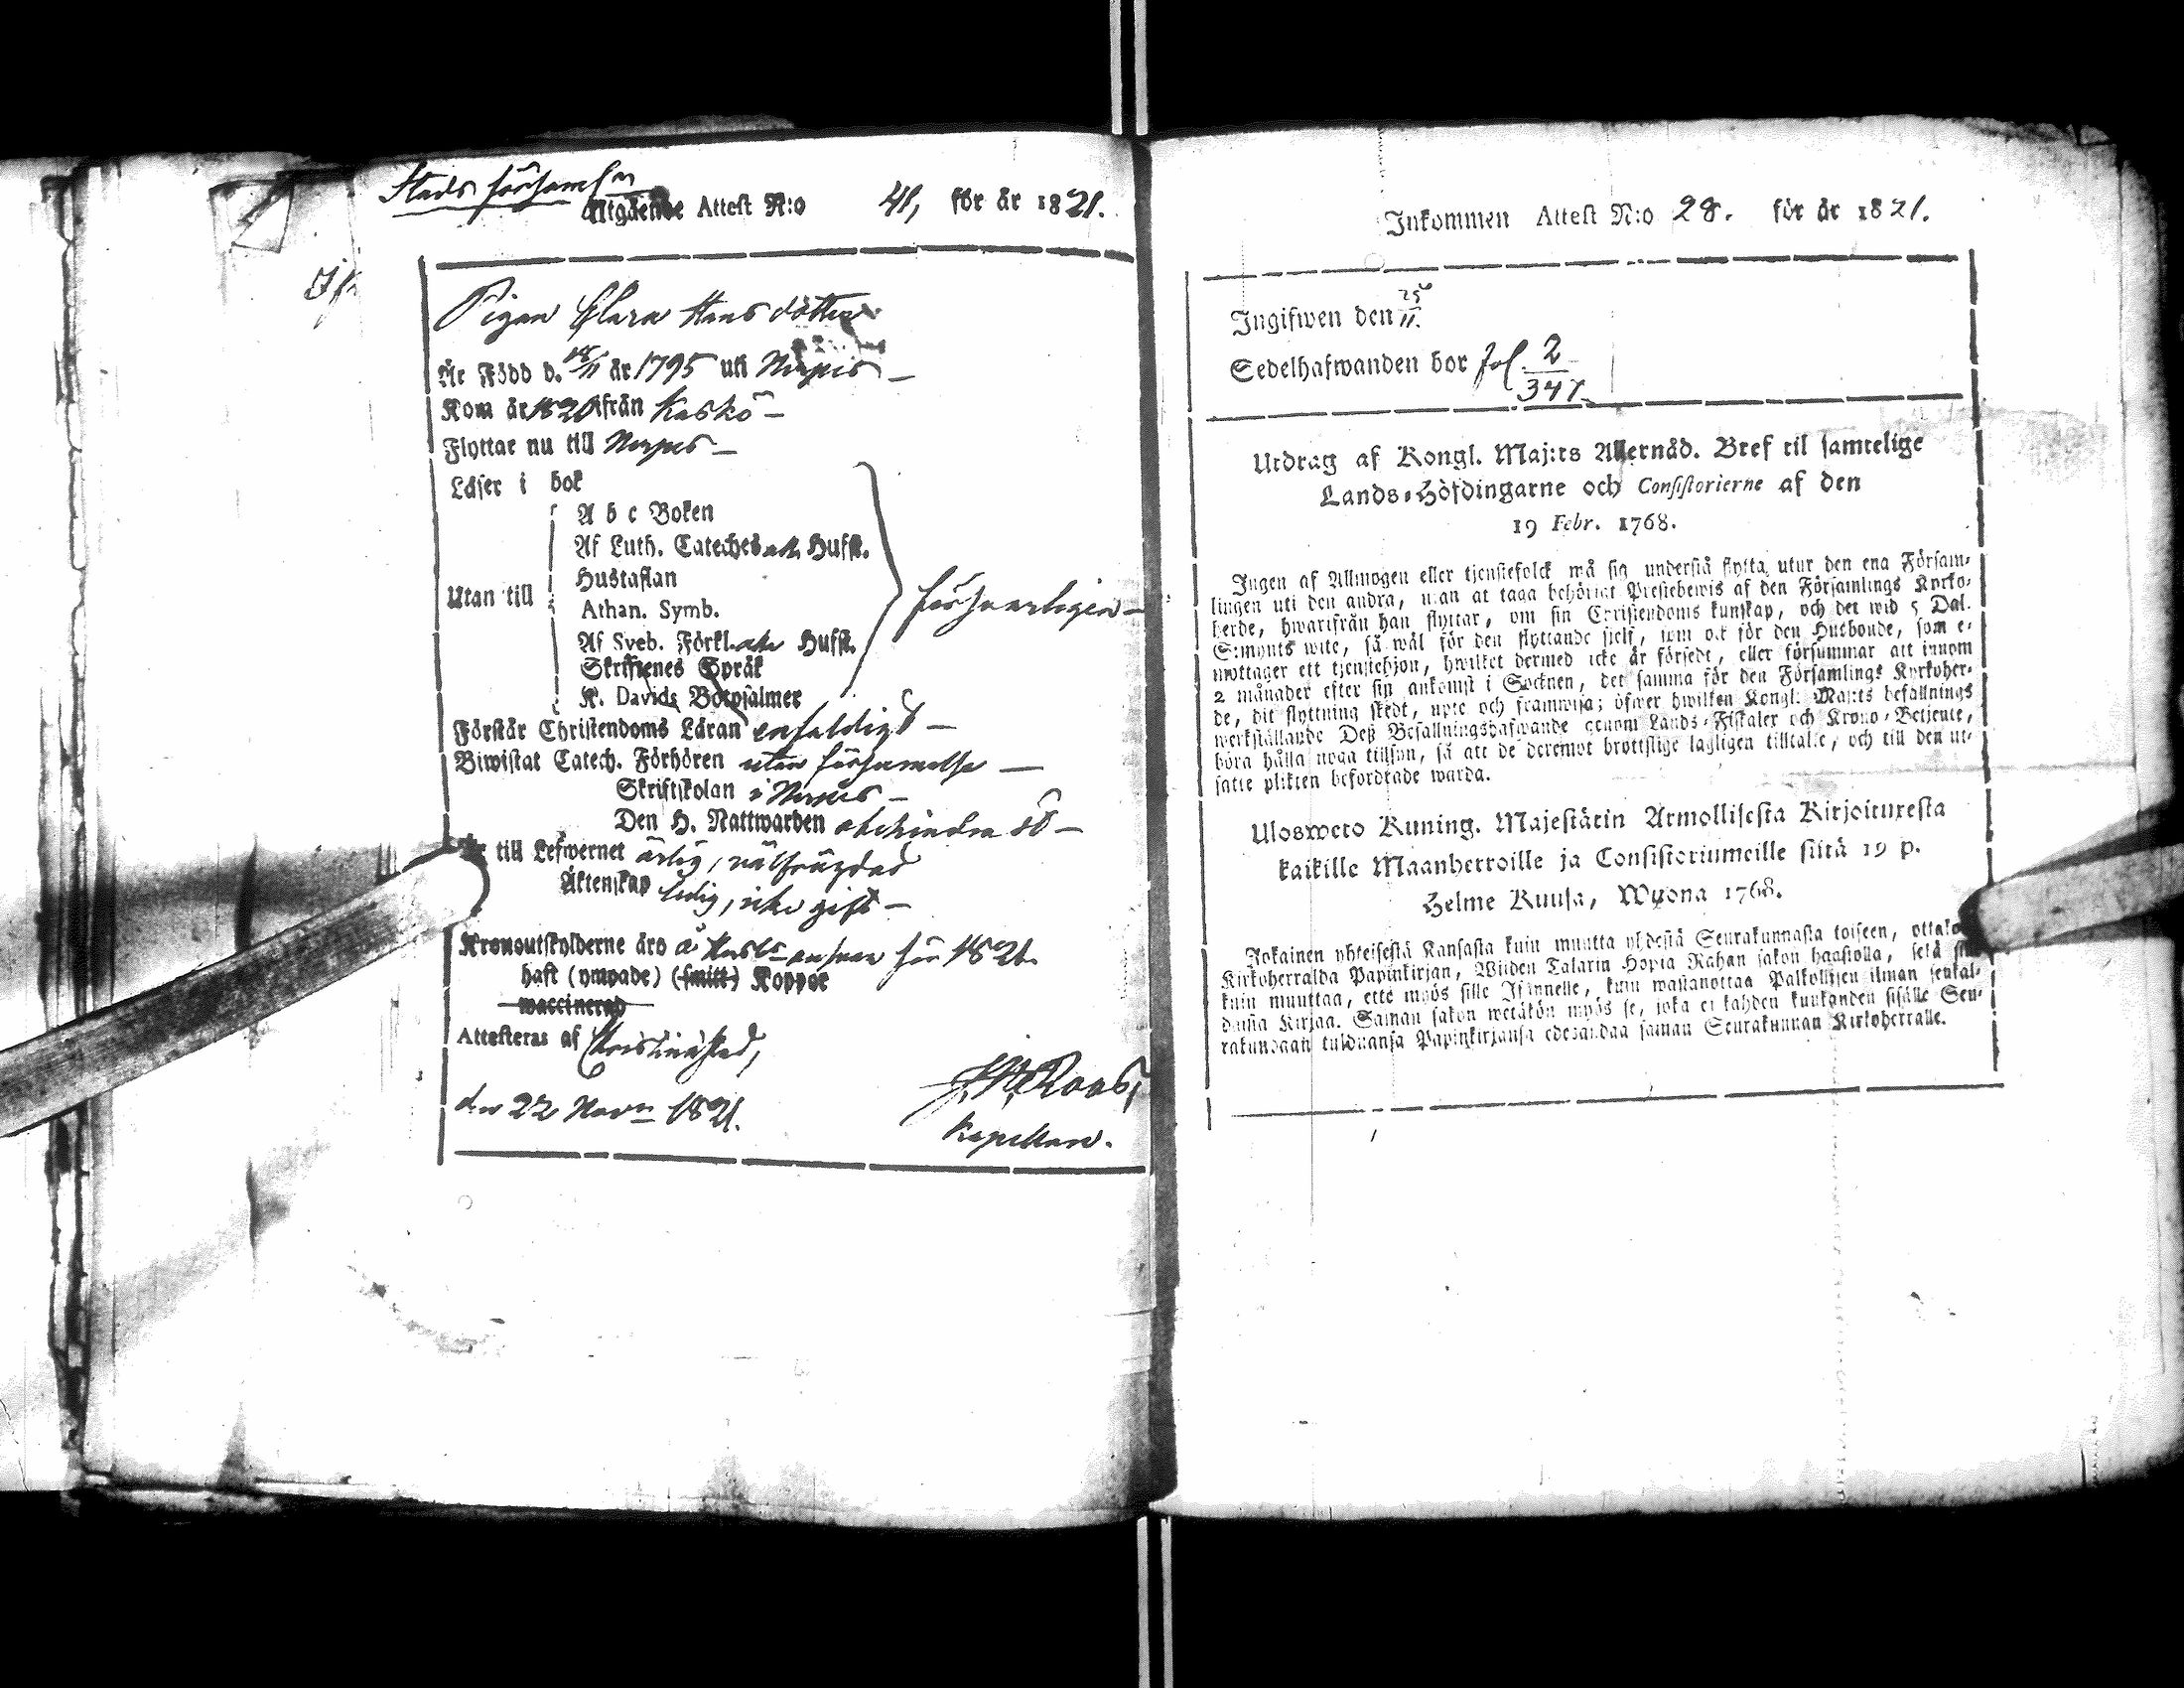 Stads församln
Utgående Attest N:o 41, för år 1821.
Pigan Clara Hansdotter
Är Född d. 18/11 år 1795 uti Nerpes —
Kom år 1820 ifrån Kaskö —
Flyttar nu till Nerpes —
Läser i bok
A b c Boken
Af Luth. Cateches och Husst.
Hustaflan
Utan till
Athan. Symb.
Af Sveb. Förkl. och Husst.
Skriftenes Språk
K. Davids Botpsalmer
försvarligen —
Förstår Christendoms Läran enfaldigt —
Biwistat Catech. Förhören utan försummelse —
Skriftskolan i Nerpes —
Den H. Nattwarden obehindrad —
till Lefwernet ärlig, välfrägdad
Äktenskap ledig, icke gift —
Kronoutskylderne äro å för 1821.
haft (ympade) (smitt-) Koppor
waccinerad
Attesteras af Christinæstad,
den 22 Novr 1821.
Roos,
Kapellan.
Inkommen Attest N:o 28. för år 1821.
Ingifwen den 25/11.
Sedelhafwanden bor Fol. 2/347
Utdrag af Kongl. Maj:ts Allernåd. Bref til samtelige
Lands-Höfdingarne och Consistorierne af den
19 Febr. 1768.
Ingen af Allmogen eller tjenstefolck må sig understå flytta utur den ena Försam-
lingen uti den andra, utan at taga behörigt Prestebewis af den Församlings Kyrko-
herde, hwarifrån han flyttar, om sin Christendoms kunskap, och det wid 5 Dal.
S:mynts wite, så wäl för den flyttande sielf, som ock för den Husbonde, som e-
mottager ett tjenstehjon, hwilket dermed icke är försedt, eller försummar att innom
2 månader efter sin ankomst i Socknen, det samma för den Församlings Kyrkoher-
de, dit flyttning skedt, upte och framwisa; öfwer hwilken Kongl. Maj:ts befallnings
werkställande Deß Befallningshafwande genom Lands-Fiskaler och Krono-Betjente,
böra hålla noga tillsyn, så att de deremot brottslige lagligen tilltalte, och till den ut-
satte plikten befordrade warda.
Ulosweto Kuning. Majestätin Armollisesta Kirjoituxesta
kaikille Maanherroille ja Consistoriumeille siitä 19 p.
Helme Kuusa, Wuona 1768.
Jokainen yhteisestä Kansasta kuin muutta yhdestä Seurakunnasta toiseen, ottako
Kirkoherralda Papinkirjan, Wiiden Talarin Hopia Rahan sakon haastolla, sekä sille
kuin muuttaa, että myös sille Isännelle, kuin wastanottaa Palkollisen ilman senkal-
daista Kirjaa. Saman sakon wetäkön myös se, joka ei kahden kuukauden sisälle Seu-
rakundaan tulduansa Papinkirjansa edesandaa saman Seurakunnan Kirkoherralle.